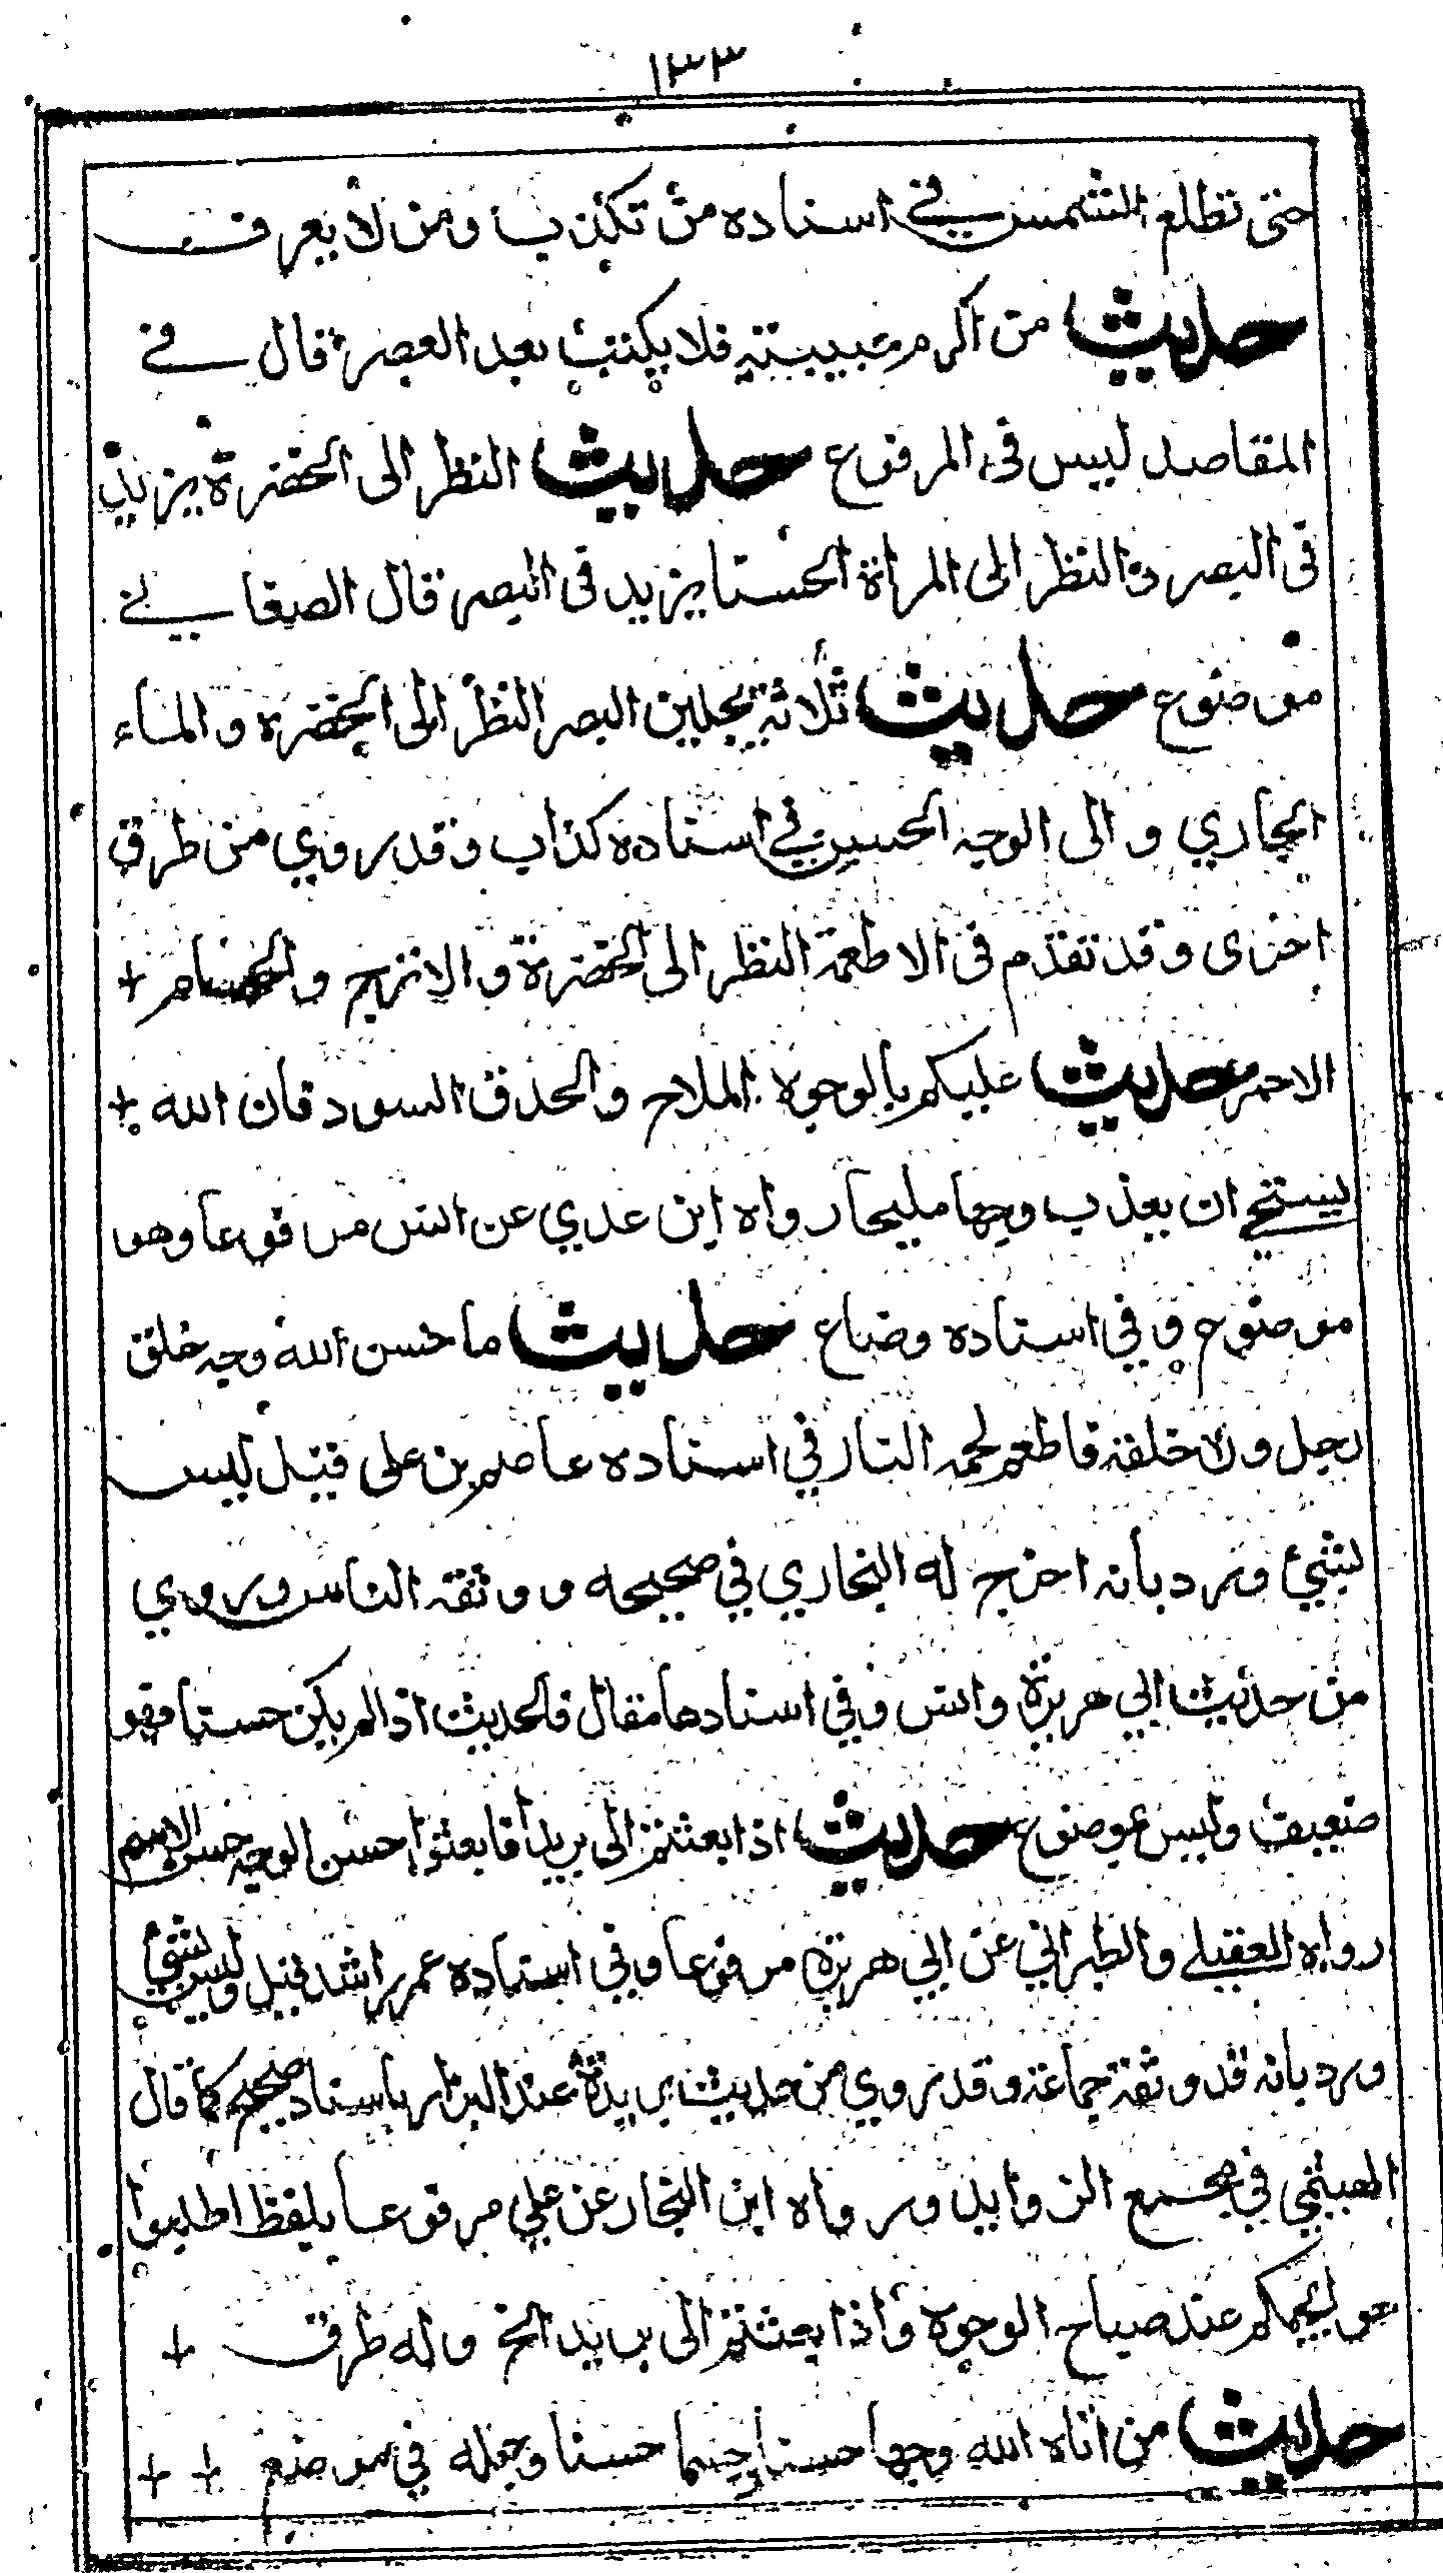 ١٣٣
حتى تطلع الشمس في اسناده من تكذيب ومن لا يعرف
حديث من اكرم حبيبتيه فلا يكتب بعد العصر قال في
المقاصد ليس في المرفوع حديث النظر الى الخضرة يزيد
في البصر والنظر الى المراة الحسنا يزيد في البصر قال الصغاني
موضوع حديث ثلاثة يجلين البصر النظر الى الخضرة والماء
الجاري والى الوجه الحسن في اسناده كذاب وقد روي من طرق
اخرى وقد تقدم في الاطعمة النظر الى الخضرة والاترج والحمام +
الاحمر حديث عليكم بالوجوه الملاح والحدق السود فان الله +
يستحي ان يعذب وجها مليحا رواه ابن عدي عن انس مرفوعا وهو
موضوع وفي اسناده وضاع حديث ما حسن الله وجه خلق
رجل ولا خلقه فاطعم لحمه النار في اسناده عاصم بن على قيل ليس
بشئ ورد بانه اخرج له البخاري في صحيحه ووثقه الناس وروي
من حديث ابي هريرة وانس وفي اسنادها مقال فالحديث اذا لم يكن حسنا فهو
ضعيف وليس بموضوع حديث اذا بعثتم الى بريدا فابعثوا حسن الوجه حسن الاسم
رواه العقيلي والطبراني عن ابي هريرة مرفوعا وفي اسناده عمر راشد قيل وليس بشئ
ورد بانه قد وثقه جماعة وقد روي من حديث بريدة عند البزار باسناد صحيح كما قال
الهيثمي في مجمع الزوايد ورواه ابن النجار عن علي مرفوعا بلفظ اطلبوا
حوايجكم عند صباح الوجوه واذا بعثتم الى بريد الخ وله طرق +
حديث من اتاه الله وجها حسنا وجسما حسنا وجعله في موضع + +